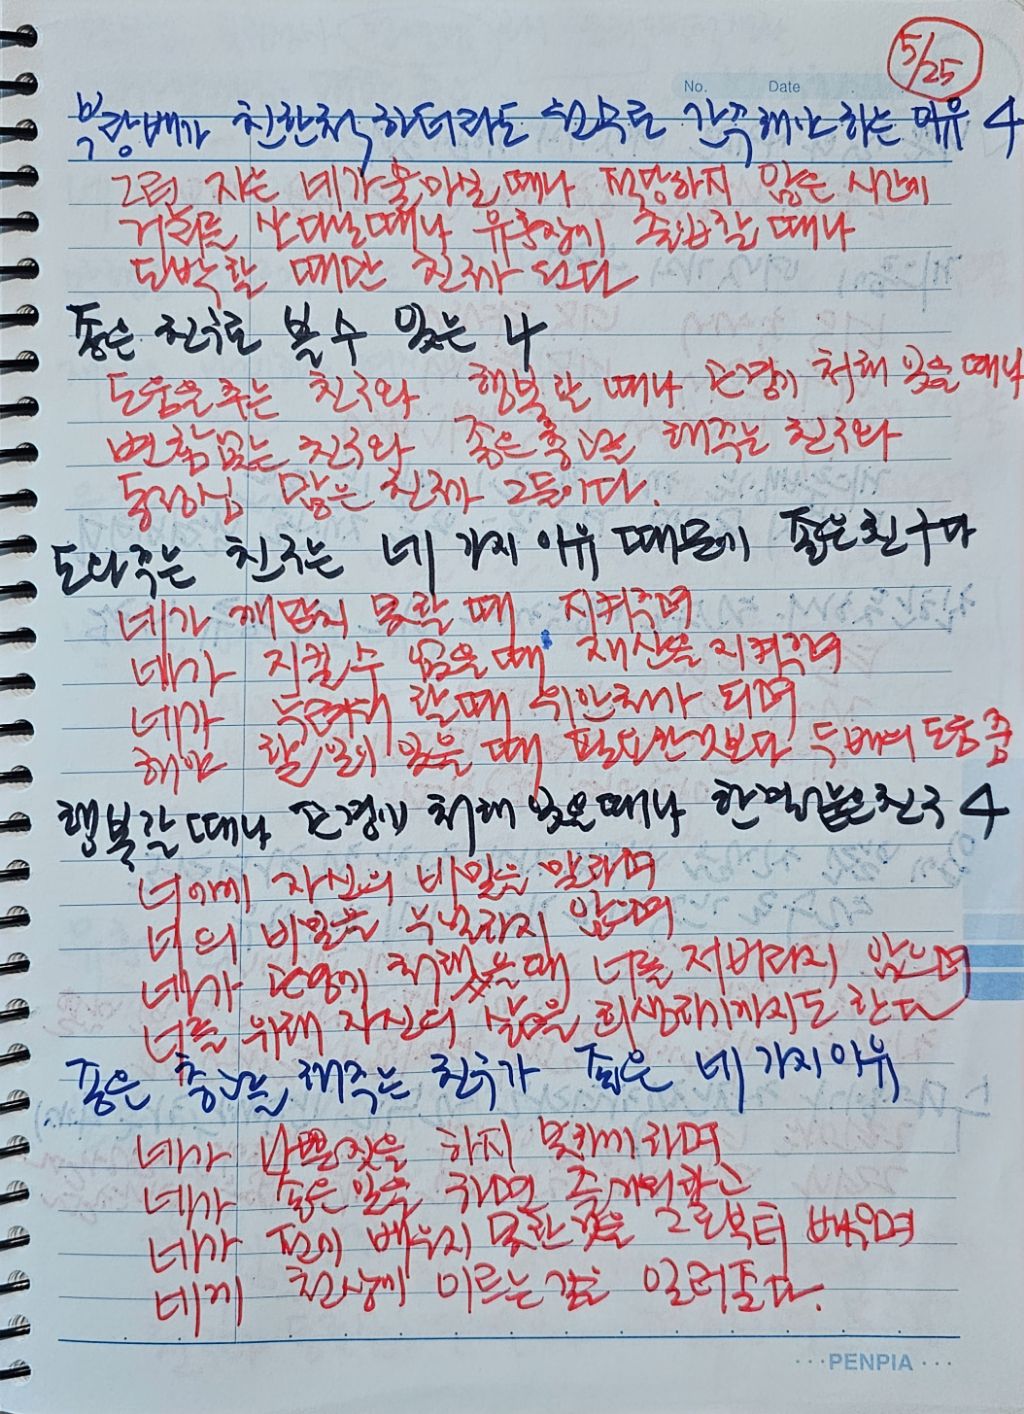 5/25
No. Date
불량배가 친한척 하더라도 원수로 간주해야 하는 이유 4
그런 자는 네가 술 마실 때나 적당하지 않은 시간에
거리를 나다닐때나 유흥장에 출입할 때나
도박할 때만 친구가 된다
좋은 친구로 볼 수 있는 4
도움을 주는 친구와 행복할 때나 곤경에 처해 있을 때나
변함없는 친구와 좋은 충고를 해주는 친구와
동정심 많은 친구가 그들이다.
도와주는 친구는 네 가지 이유 때문에 좋은 친구다
네가 깨어있지 못할 때 지켜주며
네가 지킬 수 없을 때 재산을 지켜주며
네가 할때 위안처가 되며
해야 할 일이 있을 때 필요한것보다 두배의 도움 줌
행복할 때나 곤경에 처해 있을때나 한결같은 친구 4
너에게 자신의 비밀을 말하며
너의 비밀을 누설하지 않으며
네가 곤경에 처했을 때 너를 저버리지 않으며
너를 위해 자신의 삶을 희생하기까지도 한다
좋은 충고를 해주는 친구가 좋은 네 가지 이유
네가 나쁜짓을 하지 못하게 하며
네가 좋은 일을 하면 즐거워하고
네가 전에 배우지 못한 것을 그로부터 배우며
네게 천상에 이르는 길을 일러준다.
PENPIA